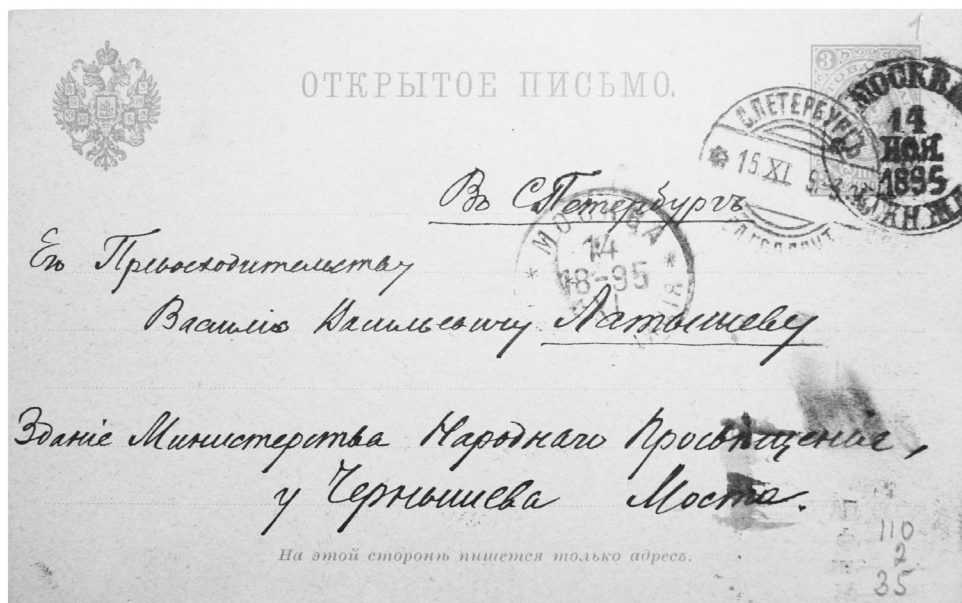 1
ОТКРЫТОЕ ПИСЬМО.
3
МОСКВА
14
НОЯ.
1895
С.ПЕТЕРБУРГЪ
15 XI 95
Въ С.Петербургъ
МОСКВА
14
18-95
XI
Его Превосходительству
Василію Васильевичу Латышеву
Зданіе Министерства Народнаго Просвѣщенія,
у Чернышева Моста.
На этой сторонѣ пишется только адресъ.
110
2
35